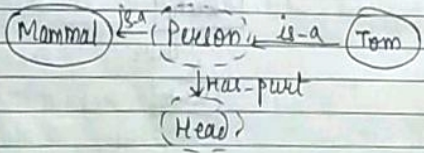 Mammal is-a Person is-a Tom
Has-part
Head